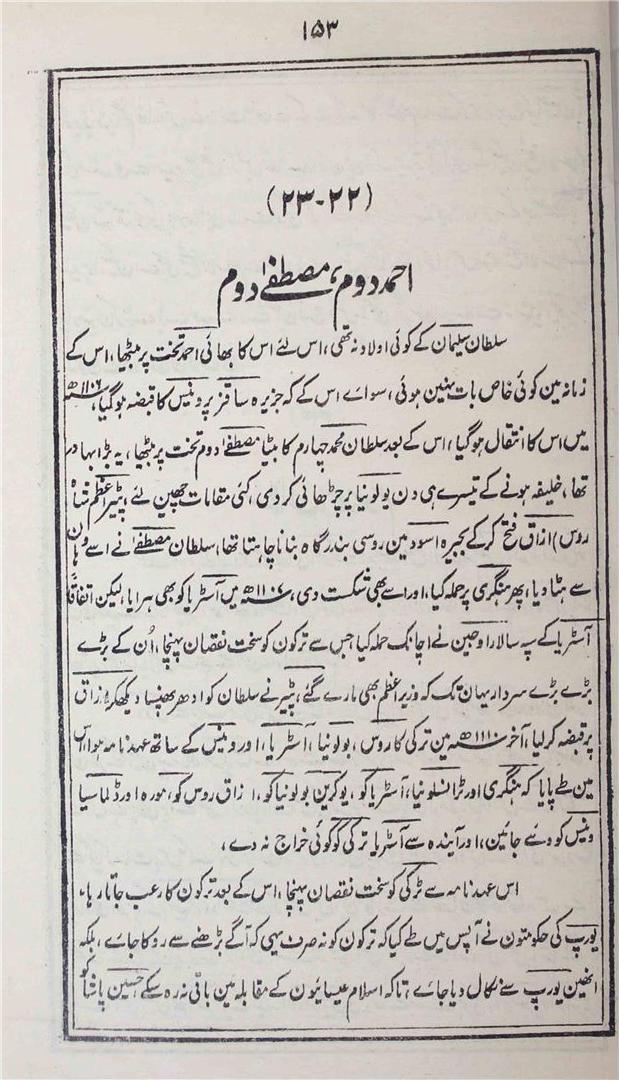 ۱۵۳
(۲۲-۲۳)
احمد دوم، مصطفےٰ دوم
سلطان سلیمان کے کوئی اولاد نہ تھی، اس لئے اس کا بھائی احمد تخت پر بیٹھا، اس کے
زمانہ مین کوئی خاص بات نہین ہوئی، سواے اس کے کہ جزیرہ ساقز پر وینس کا قبضہ ہوگیا، ۱۱۰۶ھ
میں اس کا انتقال ہوگیا، اس کے بعد سلطان محمد چہارم کا بیٹا مصطفےٰ دوم تخت پر بیٹھا، یہ بڑا بہادر
تھا، خلیفہ ہونے کے تیسرے ہی دن پولونیا پر چڑھائی کر دی، کئی مقامات چھین لئے، پیٹر اعظم شاہ
روس) ازاق فتح کرکے بحیرہ اسود مین روسی بندرگاہ بنانا چاہتا تھا، سلطان مصطفےٰ نے اسے وہان
سے ہٹا دیا، پھر منگری پر حملہ کیا، اور اسے بھی شکست دی، ۱۱۰۷ھ میں آسٹریا کو بھی ہرایا، لیکن اتفاقًا
آسٹریا کے سپہ سالار اوجین نے اچانک حملہ کیا جس سے ترکون کو سخت نقصان پہنچا، اُن کے بڑے
بڑے بڑے سردار یہان تک کہ وزیر اعظم بھی مارے گئے، پیٹر نے سلطان کو ادھر پھنسا دیکھکر ازاق
پر قبضہ کر لیا، آخر ۱۱۱۰ھ مین ترکی کا روس، پولونیا، آسٹریا، اور وینس کے ساتھ عہد نامہ ہوا، اس
مین طے پایا کہ منگری اور ٹرانسلونیا، آسٹریا کو، یوکرین پولونیا کو، ازاق روس کو، مورہ اور ڈلماسیا
وینس کو دئے جائین، اور آیندہ سے آسٹریا ترکی کو کوئی خراج نہ دے،
اس عہد نامہ سے ٹرکی کو سخت نقصان پہنچا، اس کے بعد ترکون کا رعب جاتا رہا،
یورپ کی حکومتون نے آپس میں طے کیا کہ ترکون کو نہ صرف یہی کہ آگے بڑھنے سے روکا جائے، بلکہ
انھین یورپ سے نکال دیا جاے تاکہ اسلام عیسایئون کے مقابلہ مین باقی نہ رہ سکے حسین پاشا کو